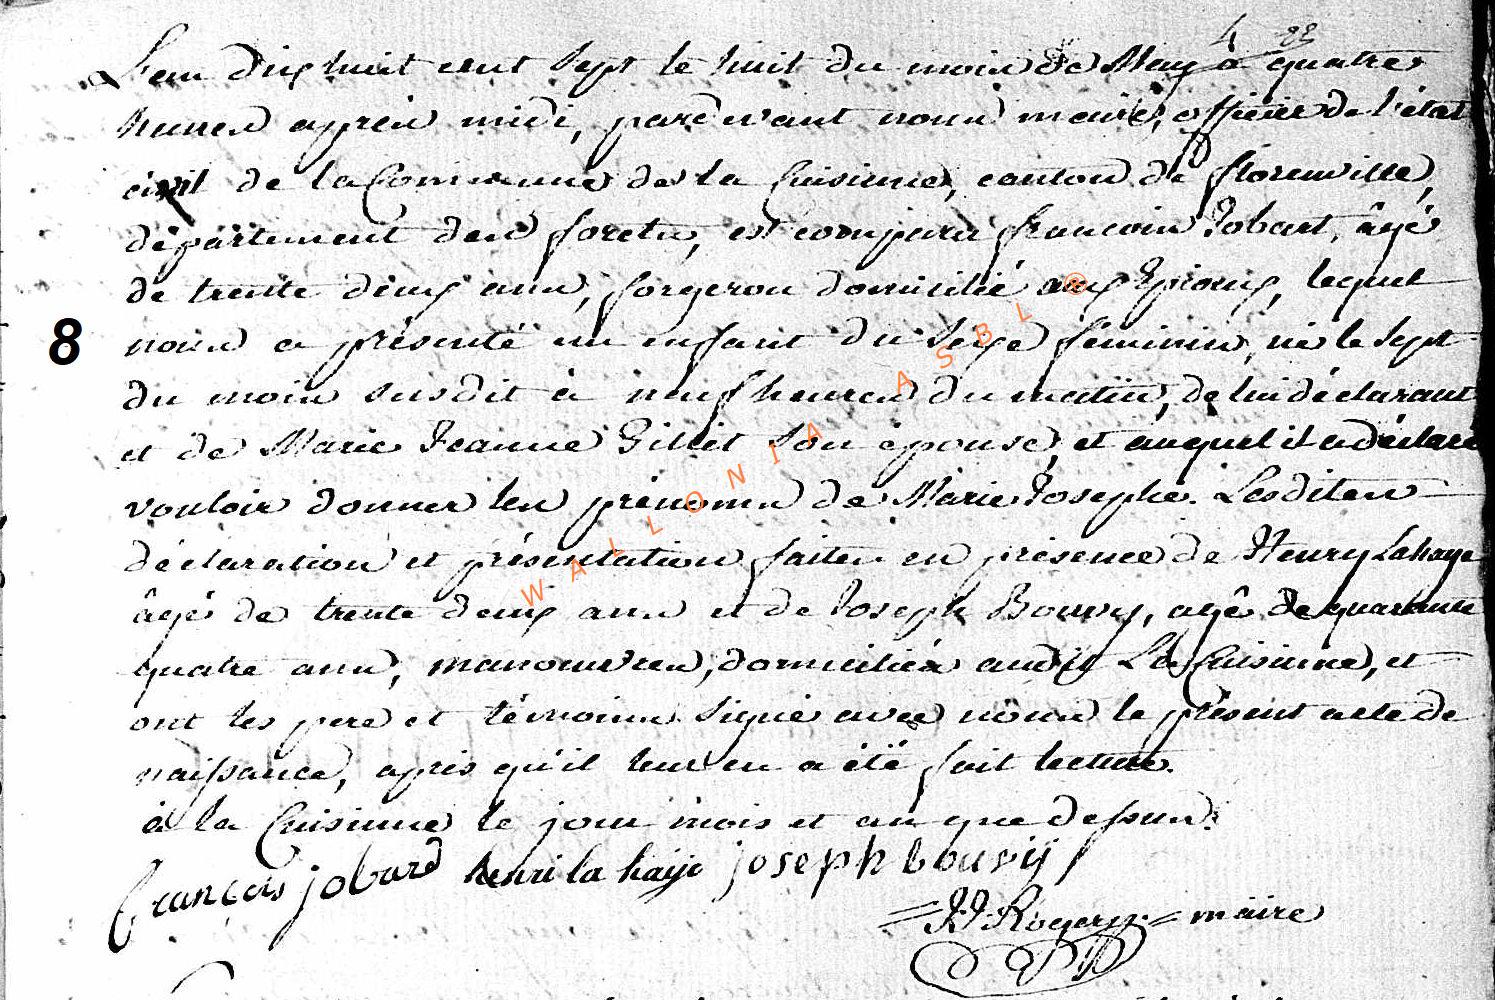 L'an dix huit cent sept le huit du mois de May à quatre
heures après midi, pardevant nous maire, officier de l'état
civil de la Commune de la Cuisinne, canton de florenville,
département des forets, est comparu francois Jobart, âgé
de trente deux ans, forgeron domicilié aux Epioux, lequel
8 nous a présenté un enfant du sexe féminin, né le sept
du mois susdit à neuf heures du matin, de lui déclarant
et de Marie Jeanne Gillet son épouse, et auquel il a déclaré
vouloir donner les prénoms de Marie Josephe. Lesdites
déclaration et présentation faites en présence de Henry Lahaye
âgé de trente deux ans et de Joseph Bouvy, agé de quarante
quatre ans, manouvres, domiciliés audit La Cuisinne, et
ont les pere et témoins signé avec nous le présent acte de
naissance, apris qu'il leur en a été fait lecture.
à la Cuisinne le jour mois et an que dessus.
françois jobard henri la haije joseph bouvij
= JJ Rogery = maire
WALLONIA ASBL ®